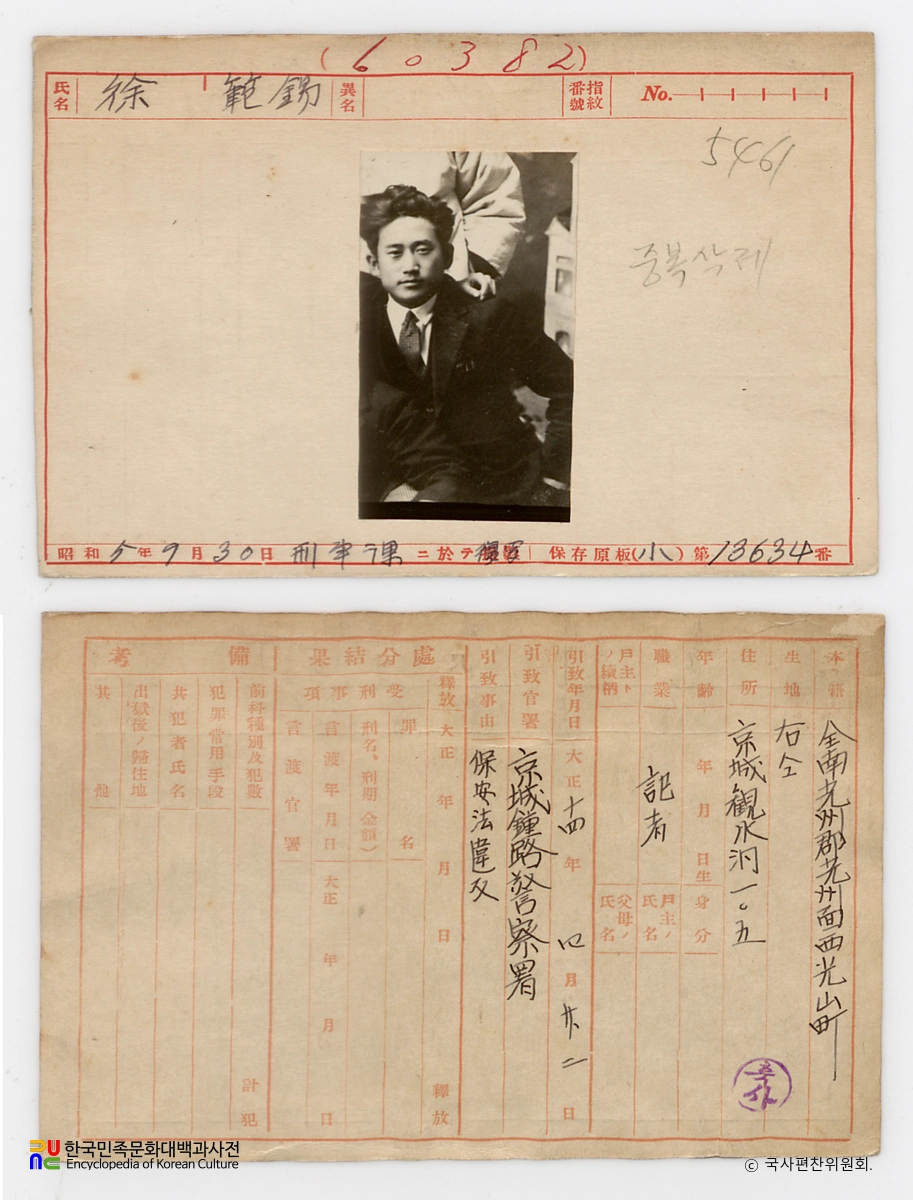 (60382)
氏名 徐 範錫 異名 指紋番號 No.
5461
중복삭제
昭和5年9月30日 刑事課 ニ於テ複寫 保存原板(小)第13634番
本籍 全南光州郡光州面西光山町
生地 右仝
住所 京城觀水洞一〇五
年齡 年 月 日生 身分
職業 記者 戶主ノ氏名
戶主トノ續柄 父母ノ氏名
引致年月日 大正十四年 四月廿二日
引致官署 京城鍾路警察署
引致事由 保安法違反
釋放 大正 年 月 日 釋放
處分結果
受刑事項
罪名
刑名、刑期(金額)
言渡年月日 大正 年 月 日
言渡官署
備考
前科種別及犯數 計 犯
犯罪常用手段
共犯者氏名
出獄後ノ歸住地
其他
한국민족문화대백과사전
Encyclopedia of Korean Culture
© 국사편찬위원회.